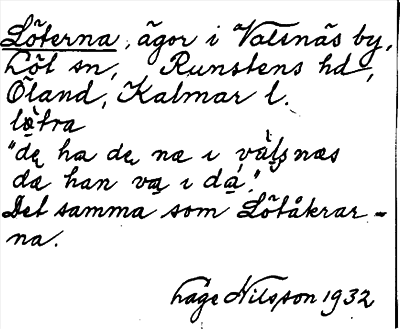 Löterna, ägor i Valsnäs by,
Löt sn, Runstens hd,
Öland, Kalmar l.
"dę ha dę næ i
da han va i dá".
Det samma som Lötåkrar-
na.
Nilsson 1932